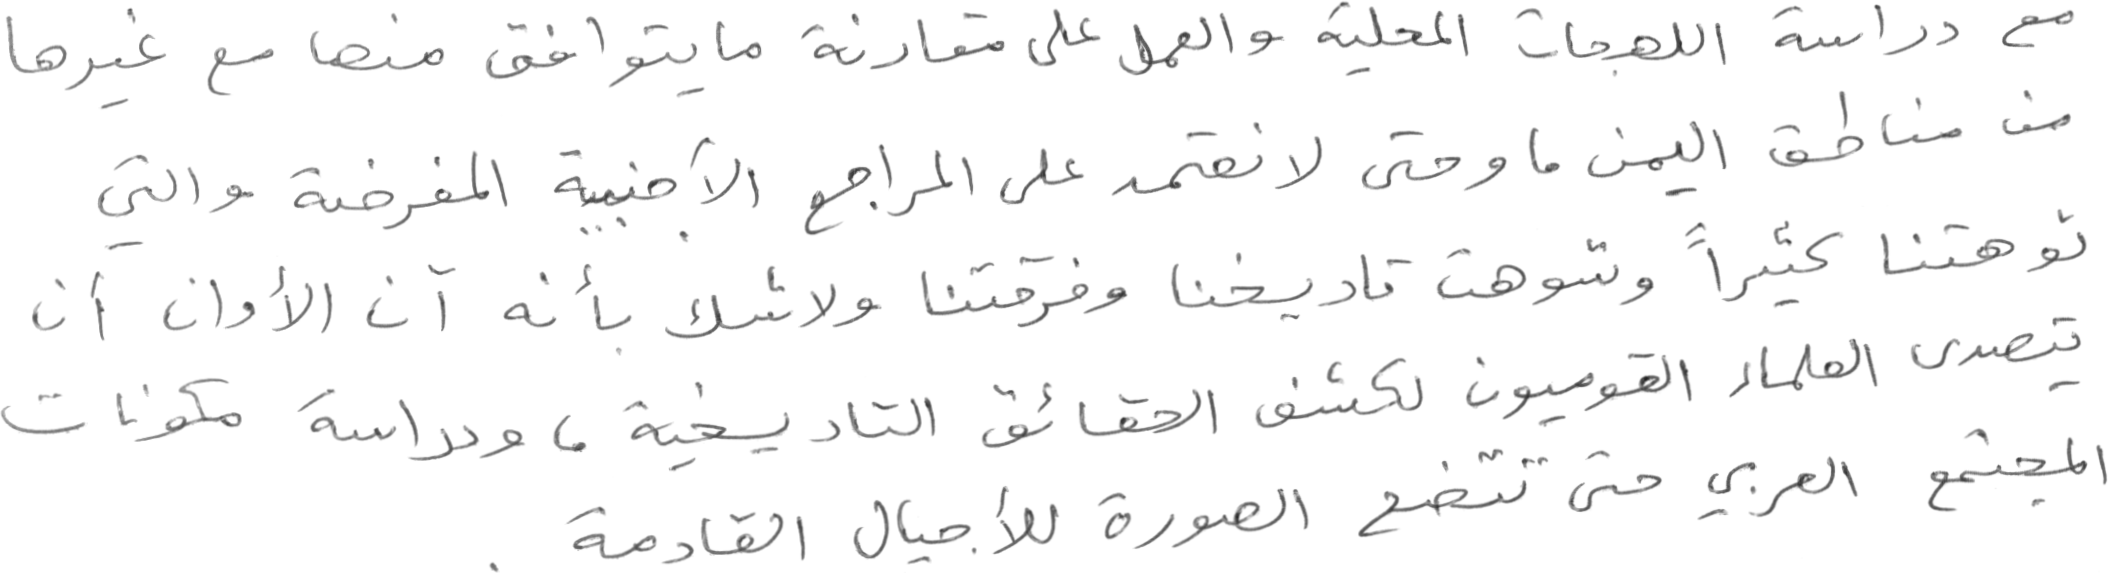 مع دراسة اللهجات المحلية والعمل على مقارنة ما يتوافق منها مع غيرها
من مناطق اليمن ، وحتى لا نعتمد على المراجع الأجنبية المغرضة والتي
توهتنا كثيراً وشوهت تاريخنا وفرقتنا ولاشك بأنه آن الأوان أن
يتصدى العلماء القوميون لكشف الحقائق التاريخية ، ودراسة مكونات
المجتمع العربي حتى تتضح الصورة للأجيال القادمة .